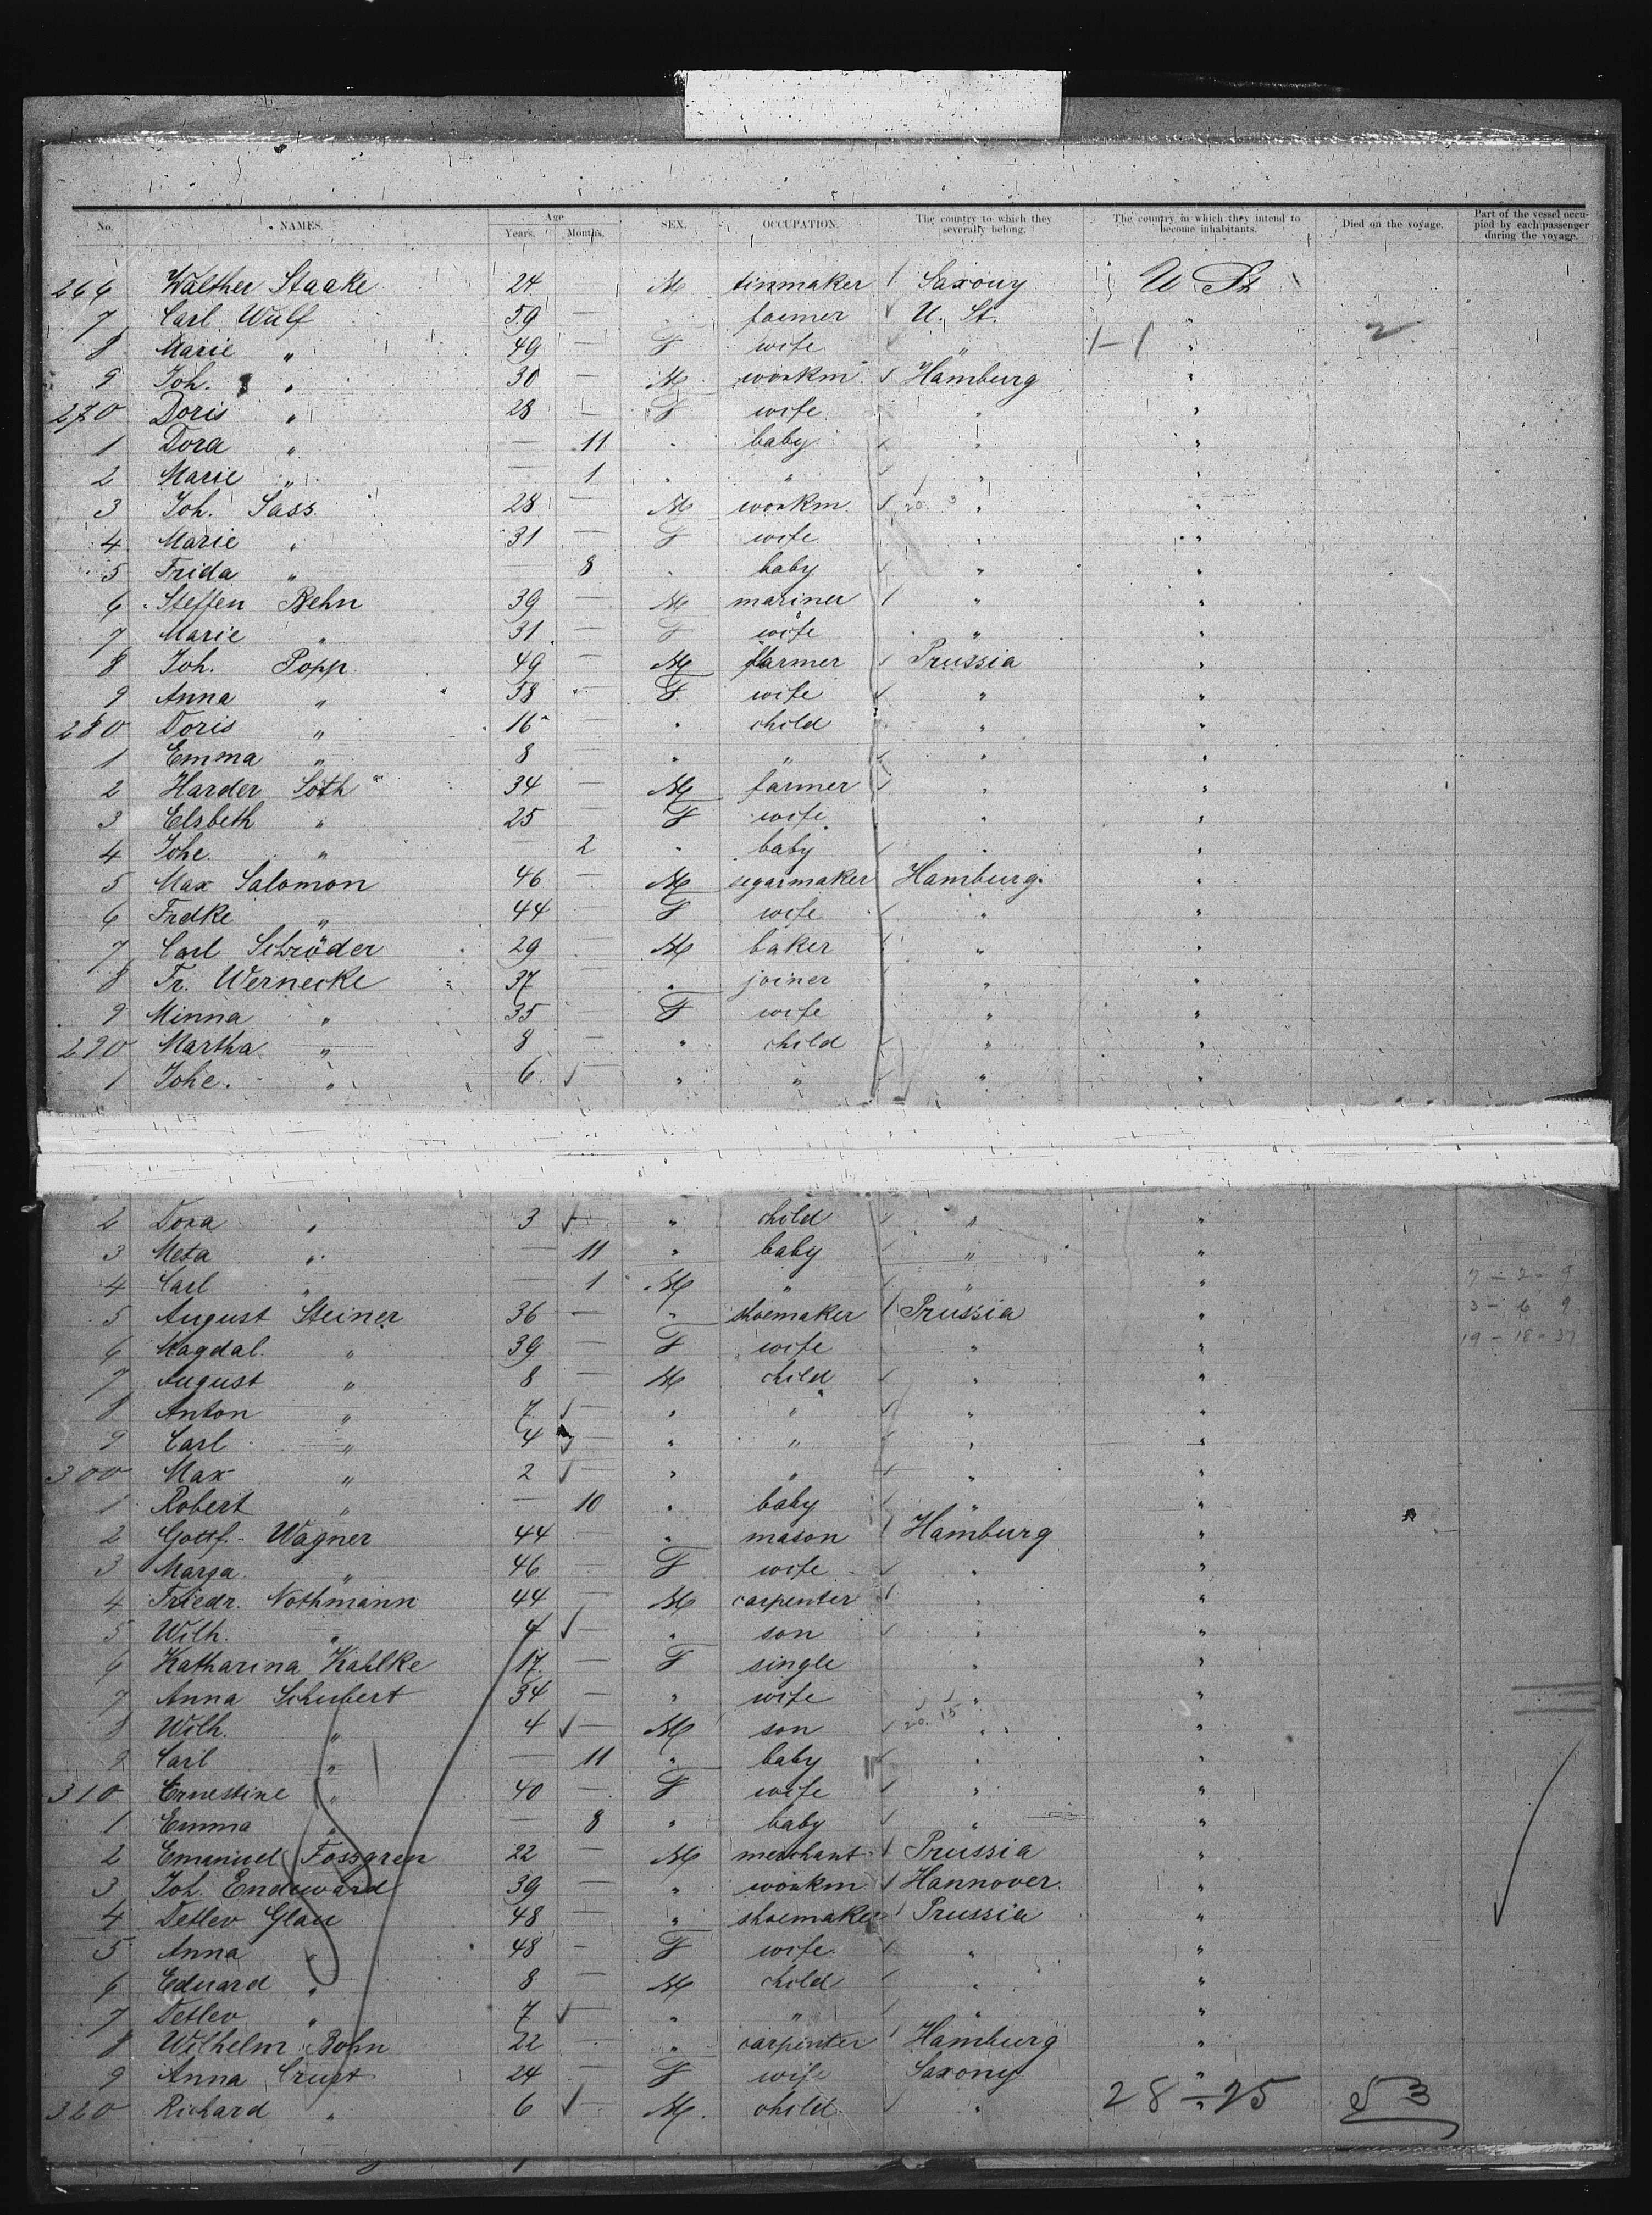 No. NAMES. Age Years. Months. SEX. OCCUPATION. The country to which they severally belong. The country in which they intend to become inhabitants. Died on the voyage. Part of the vessel occupied by each passenger during the voyage.
266 Walther Staake 24 M tinmaker Saxony U St
7 Carl Wulf 59 — farmer U. St. "
8 Marie " 49 — F wife " 1-1 " 2
9 Joh. " 30 — M workm. Hamburg "
270 Doris " 28 — F wife " "
1 Dora " — 11 " baby " "
2 Marie " — 1 " " " "
3 Joh. Sass 28 — M workm. 20. 3 " "
4 Marie " 31 — F wife " "
5 Frida " — 8 " baby " "
6 Steffen Behn 39 — M mariner " "
7 Marie " 31 — F wife " "
8 Joh. Popp 49 — M farmer Prussia "
9 Anna " 58 — F wife " "
280 Doris " 16 — " child " "
1 Emma " 8 " " " "
2 Harder Söth 34 — M farmer " "
3 Elsbeth " 25 — F wife " "
4 Johe. " — 2 " baby " "
5 Max Salomon 46 — M segarmaker Hamburg. "
6 Fredke " 44 — F wife " "
7 Carl Schröder 29 — M baker " "
8 Fr. Wernecke 37 — " joiner " "
9 Minna " 35 F wife " "
290 Martha " 8 — " child " "
1 Johe. " 6 ✓— " " " "
2 Dora " 3 ✓— " child " "
3 Meta " — 11 " baby " "
4 Carl " — 1 M " " " 7 - 2 - 9
5 August Steiner 36 — " shoemaker Prussia " 3 - 6 9
6 Magdal. " 39 — F wife " " 19 - 18 - 37
7 August " 8 — M child " "
8 Anton " 7 ✓— " " " "
9 Carl " 4 ✓— " " " "
300 Max " 2 ✓— " " " "
1 Robert " — 10 " baby " "
2 Gottf. Wagner 44 " mason Hamburg "
3 Marga. " 46 F wife " "
4 Friedr. Nothmann 44 — M carpenter " "
5 Wilh. " 4 ✓— " son " "
6 Katharina Kahlke 17 — F single " "
7 Anna Schubert 34 — " wife " "
8 Wilh. " 4 ✓— M son 20. 15 " "
9 Carl " — 11 " baby " "
310 Ernestine " 40 — F wife " "
1 Emma " — 8 " baby " "
2 Emanuel Fossgren 22 — M merchant Prussia "
3 Joh. Endeward 39 — " workm Hannover "
4 Detlev Glau 48 — " shoemaker Prussia "
5 Anna " 48 — F wife " "
6 Eduard " 8 — M child " "
7 Detlev " 7 ✓— " " " "
8 Wilhelm Bohn 22 — " carpenter Hamburg "
9 Anna Crust 24 — F wife Saxony "
320 Richard " 6 ✓— M. child " 28 - 25 53